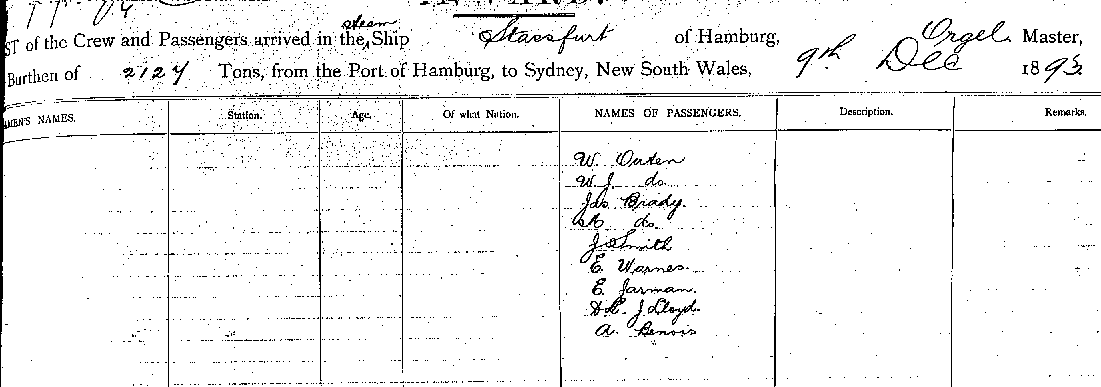 steam
ST of the Crew and Passengers arrived in the Ship Stassfurt of Hamburg, Orgel Master,
Burthen of 2124 Tons, from the Port of Hamburg, to Sydney, New South Wales, 9th Dec 1895
MEN'S NAMES. Station. Age. Of what Nation. NAMES OF PASSENGERS. Description. Remarks.
W. Outen
W. J. do
Jas Brady.
do
J Smith
E. Warnes.
E. Jarman.
J. Lloyd.
A. Benois